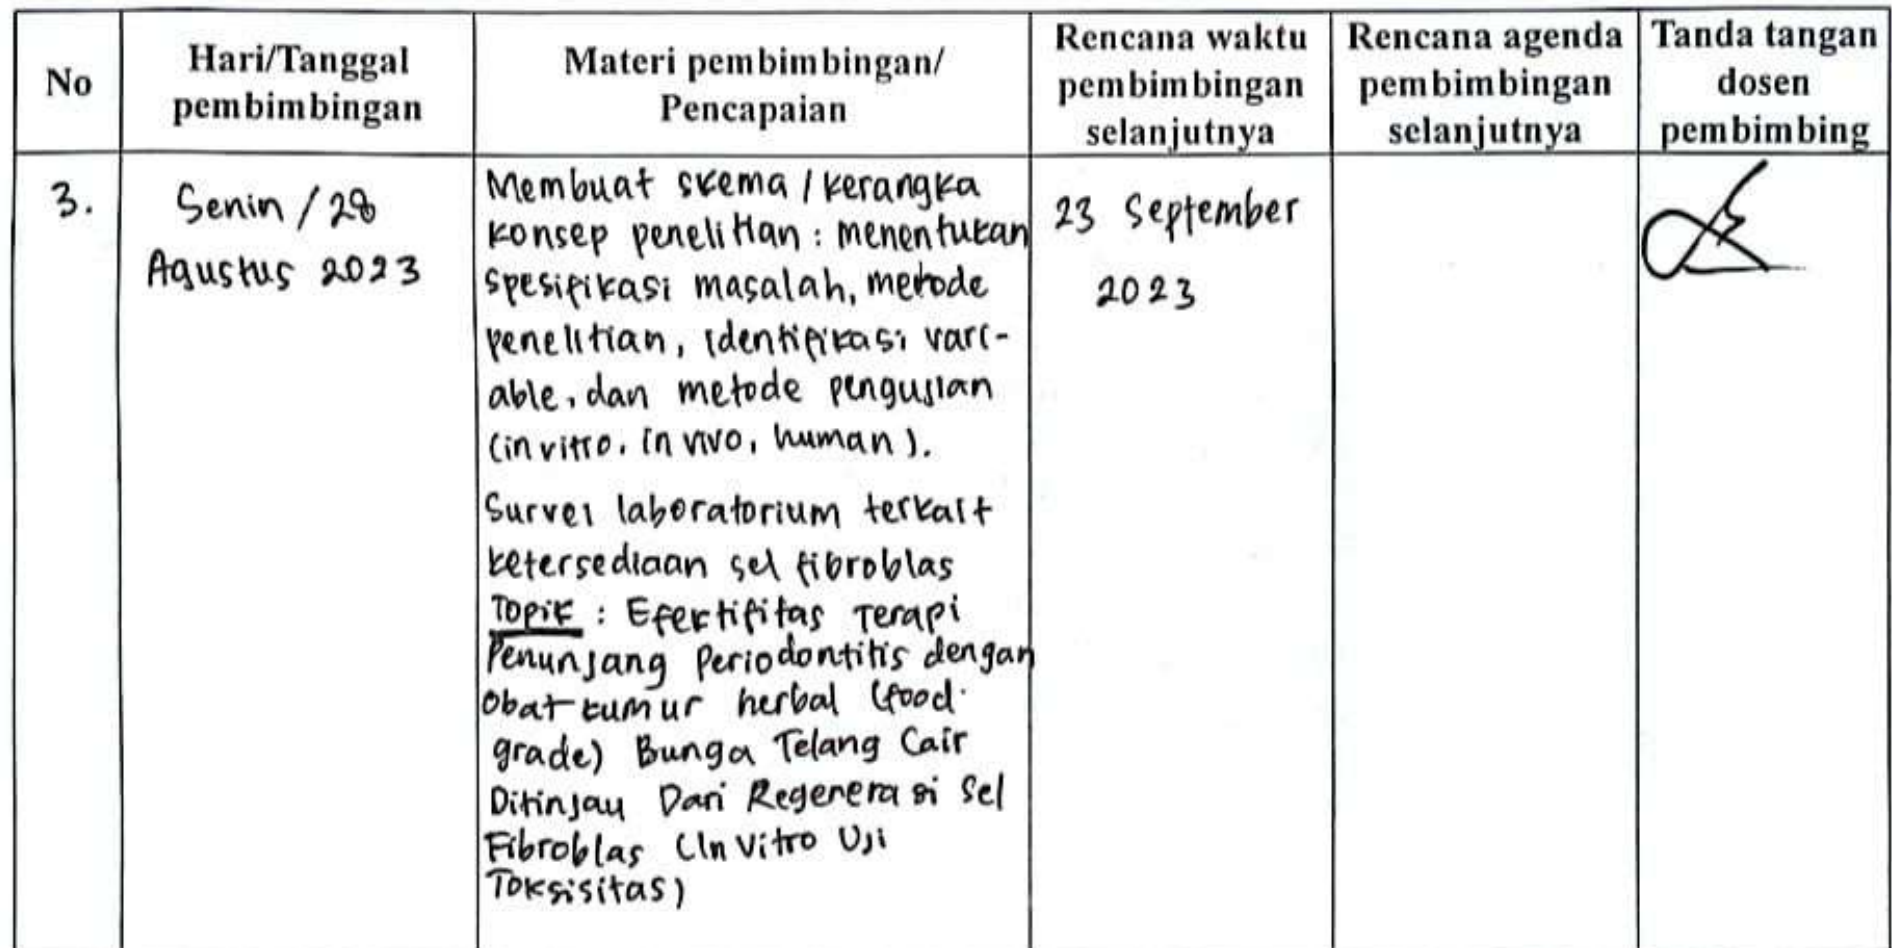 No
Hari/Tanggal
pembimbingan
Materi pembimbingan/
Pencapaian
Rencana waktu
pembimbingan
selanjutnya
Rencana agenda
pembimbingan
selanjutnya
Tanda tangan
dosen
pembimbing
3.
Senin / 28
Agustus 2023
Membuat skema / kerangka
konsep penelitian : menentukan
spesifikasi masalah, metode
penelitian, identifikasi vari-
able, dan metode pengujian
(in vitro, in vivo, human).
Survei laboratorium terkait
ketersediaan sel fibroblas
Topik : Efektifitas Terapi
Penunjang Periodontitis dengan
Obat kumur herbal (food
grade) Bunga Telang Cair
Ditinjau Dari Regenerasi Sel
Fibroblas (In Vitro Uji
Toksisitas)
23 September
2023